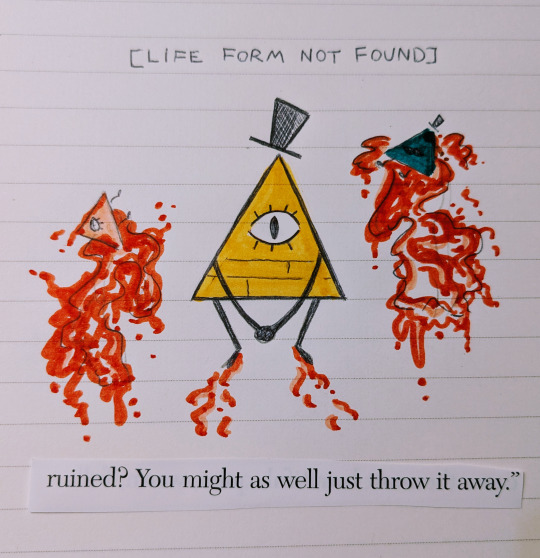 [LIFE FORM NOT FOUND]
ruined? You might as well just throw it away.”